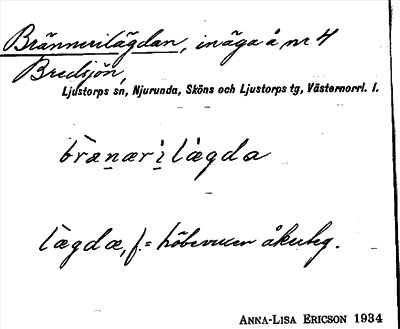 Brännerilägdan, inäga å nr 4
Bredsjön,
Ljustorps sn, Njurunda, Sköns och Ljustorps tg, Västernorrl. l.
brænæri lægda
lægdæ, f. = höbevuxen åkerteg.
ANNA-LISA ERICSON 1934